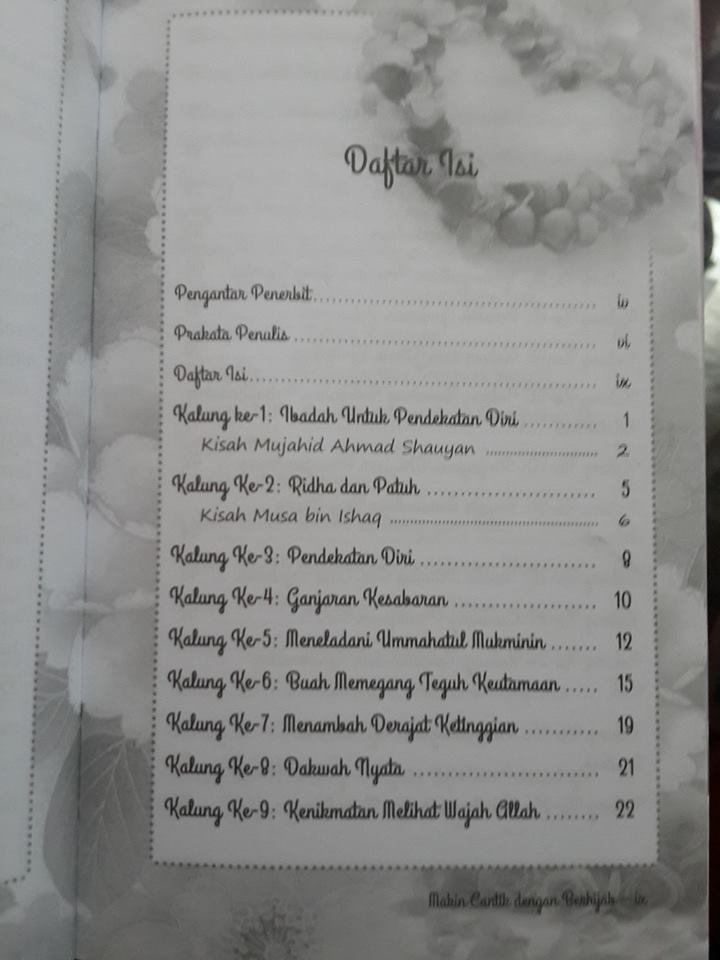 Daftar Isi
Pengantar Penerbit ..................................... iv
Prakata Penulis ........................................ vi
Daftar Isi ............................................. ix
Kalung ke-1: Ibadah Untuk Pendekatan Diri ............ 1
Kisah Mujahid Ahmad Shauyan ............................ 2
Kalung Ke-2: Ridha dan Patuh ........................ 5
Kisah Musa bin Ishaq ................................... 6
Kalung Ke-3: Pendekatan Diri ......................... 8
Kalung Ke-4: Ganjaran Kesabaran .................... 10
Kalung Ke-5: Meneladani Ummahatul Mukminin ....... 12
Kalung Ke-6: Buah Memegang Teguh Keutamaan ..... 15
Kalung Ke-7: Menambah Derajat Ketinggian ........... 19
Kalung Ke-8: Dakwah Nyata ........................... 21
Kalung Ke-9: Kenikmatan Melihat Wajah Allah ........ 22
Makin Cantik dengan Berhijab — ix